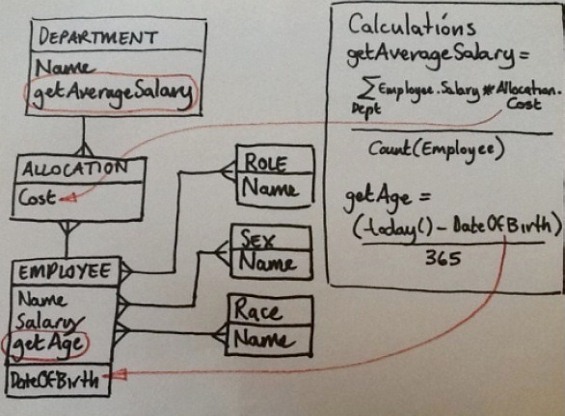 DEPARTMENT
Name
getAverageSalary
ALLOCATION
Cost
EMPLOYEE
Name
Salary
getAge
DateOfBirth
ROLE
Name
SEX
Name
Race
Name
Calculations
getAverageSalary =
∑ Employee.Salary * Allocation.
Dept Cost
Count(Employee)
getAge =
(today() - DateOfBirth)
365